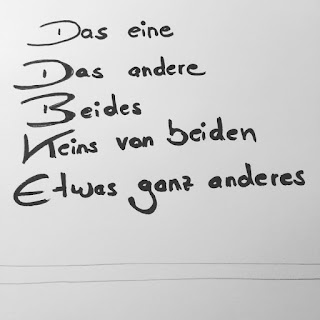 Das eine
Das andere
Beides
Keins von beiden
Etwas ganz anderes